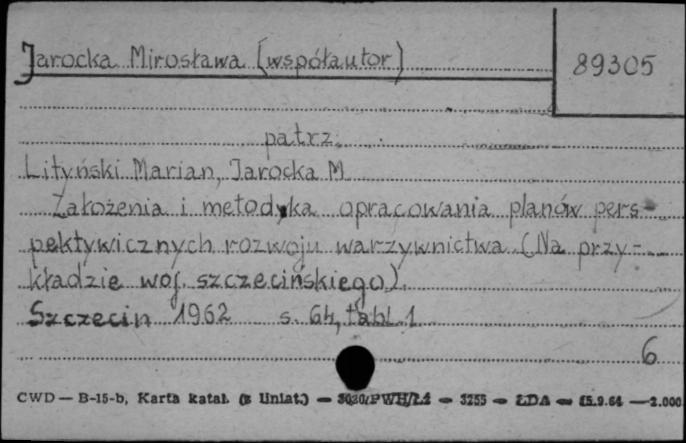 Jarocka Mirosława (współautor)
89305
patrz.
Lityński Marian, Jarocka M.
Założenia i metodyka opracowania planów pers-
pektywicznych rozwoju warzywnictwa (Na przy-
kładzie woj. szczecińskiego).
Szczecin 1962 s. 64, tabl. 1
6
CWD — B-15-b, Karta katal. (z liniat.) — 3020/PWH/Ł1 — 3255 — ŁDA — 15.9.64 — 2.000